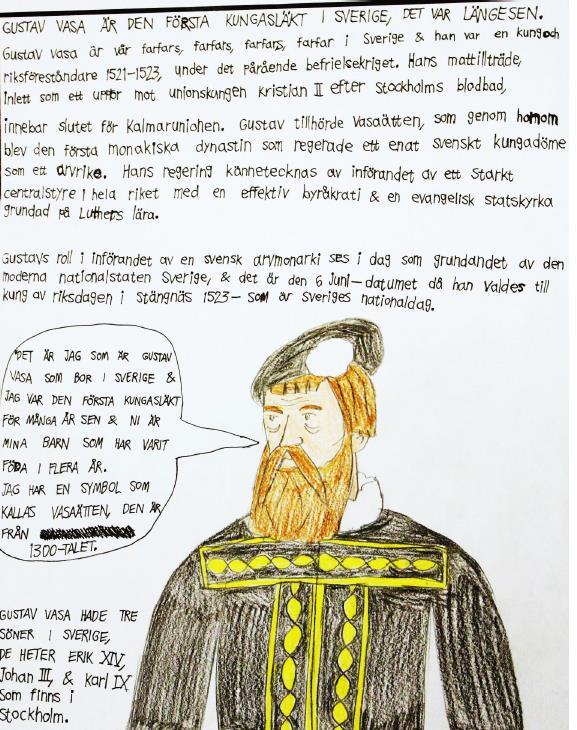 GUSTAV VASA ÄR DEN FÖRSTA KUNGASLÄKT I SVERIGE, DET VAR LÄNGESEN.
Gustav Vasa är vår farfars, farfars, farfars, farfar i Sverige & han var en kung och
riksföreståndare 1521-1523, under det pårående befrielsekriget. Hans mattillträde,
inlett som ett uppror mot unionskungen Kristian II efter Stockholms blodbad,
innebar slutet för Kalmarunionen. Gustav tillhörde Vasaätten, som genom honom
blev den första monakiska dynastin som regerade ett enat svenskt kungadöme
som ett arvrike. Hans regering kännetecknas av införandet av ett starkt
centralstyre i hela riket med en effektiv byråkrati & en evangelisk statskyrka
grundad på Luthers lära.
Gustavs roll i införandet av en svensk arvmonarki ses i dag som grundandet av den
moderna nationalstaten Sverige, & det är den 6 Juni-datumet då han valdes till
kung av riksdagen i Stängnäs 1523- som är Sveriges nationaldag.
DET ÄR JAG SOM ÄR GUSTAV
VASA SOM BOR I SVERIGE &
JAG VAR DEN FÖRSTA KUNGASLÄKT
FÖR MÅNGA ÅR SEN & NI ÄR
MINA BARN SOM HAR VARIT
FÖDA I FLERA ÅR.
JAG HAR EN SYMBOL SOM
KALLAS VASAÄTTEN, DEN ÄR
FRÅN
1300-TALET.
GUSTAV VASA HADE TRE
SÖNER I SVERIGE,
DE HETER ERIK XIV,
Johan III, & Karl IX
Som finns i
Stockholm.